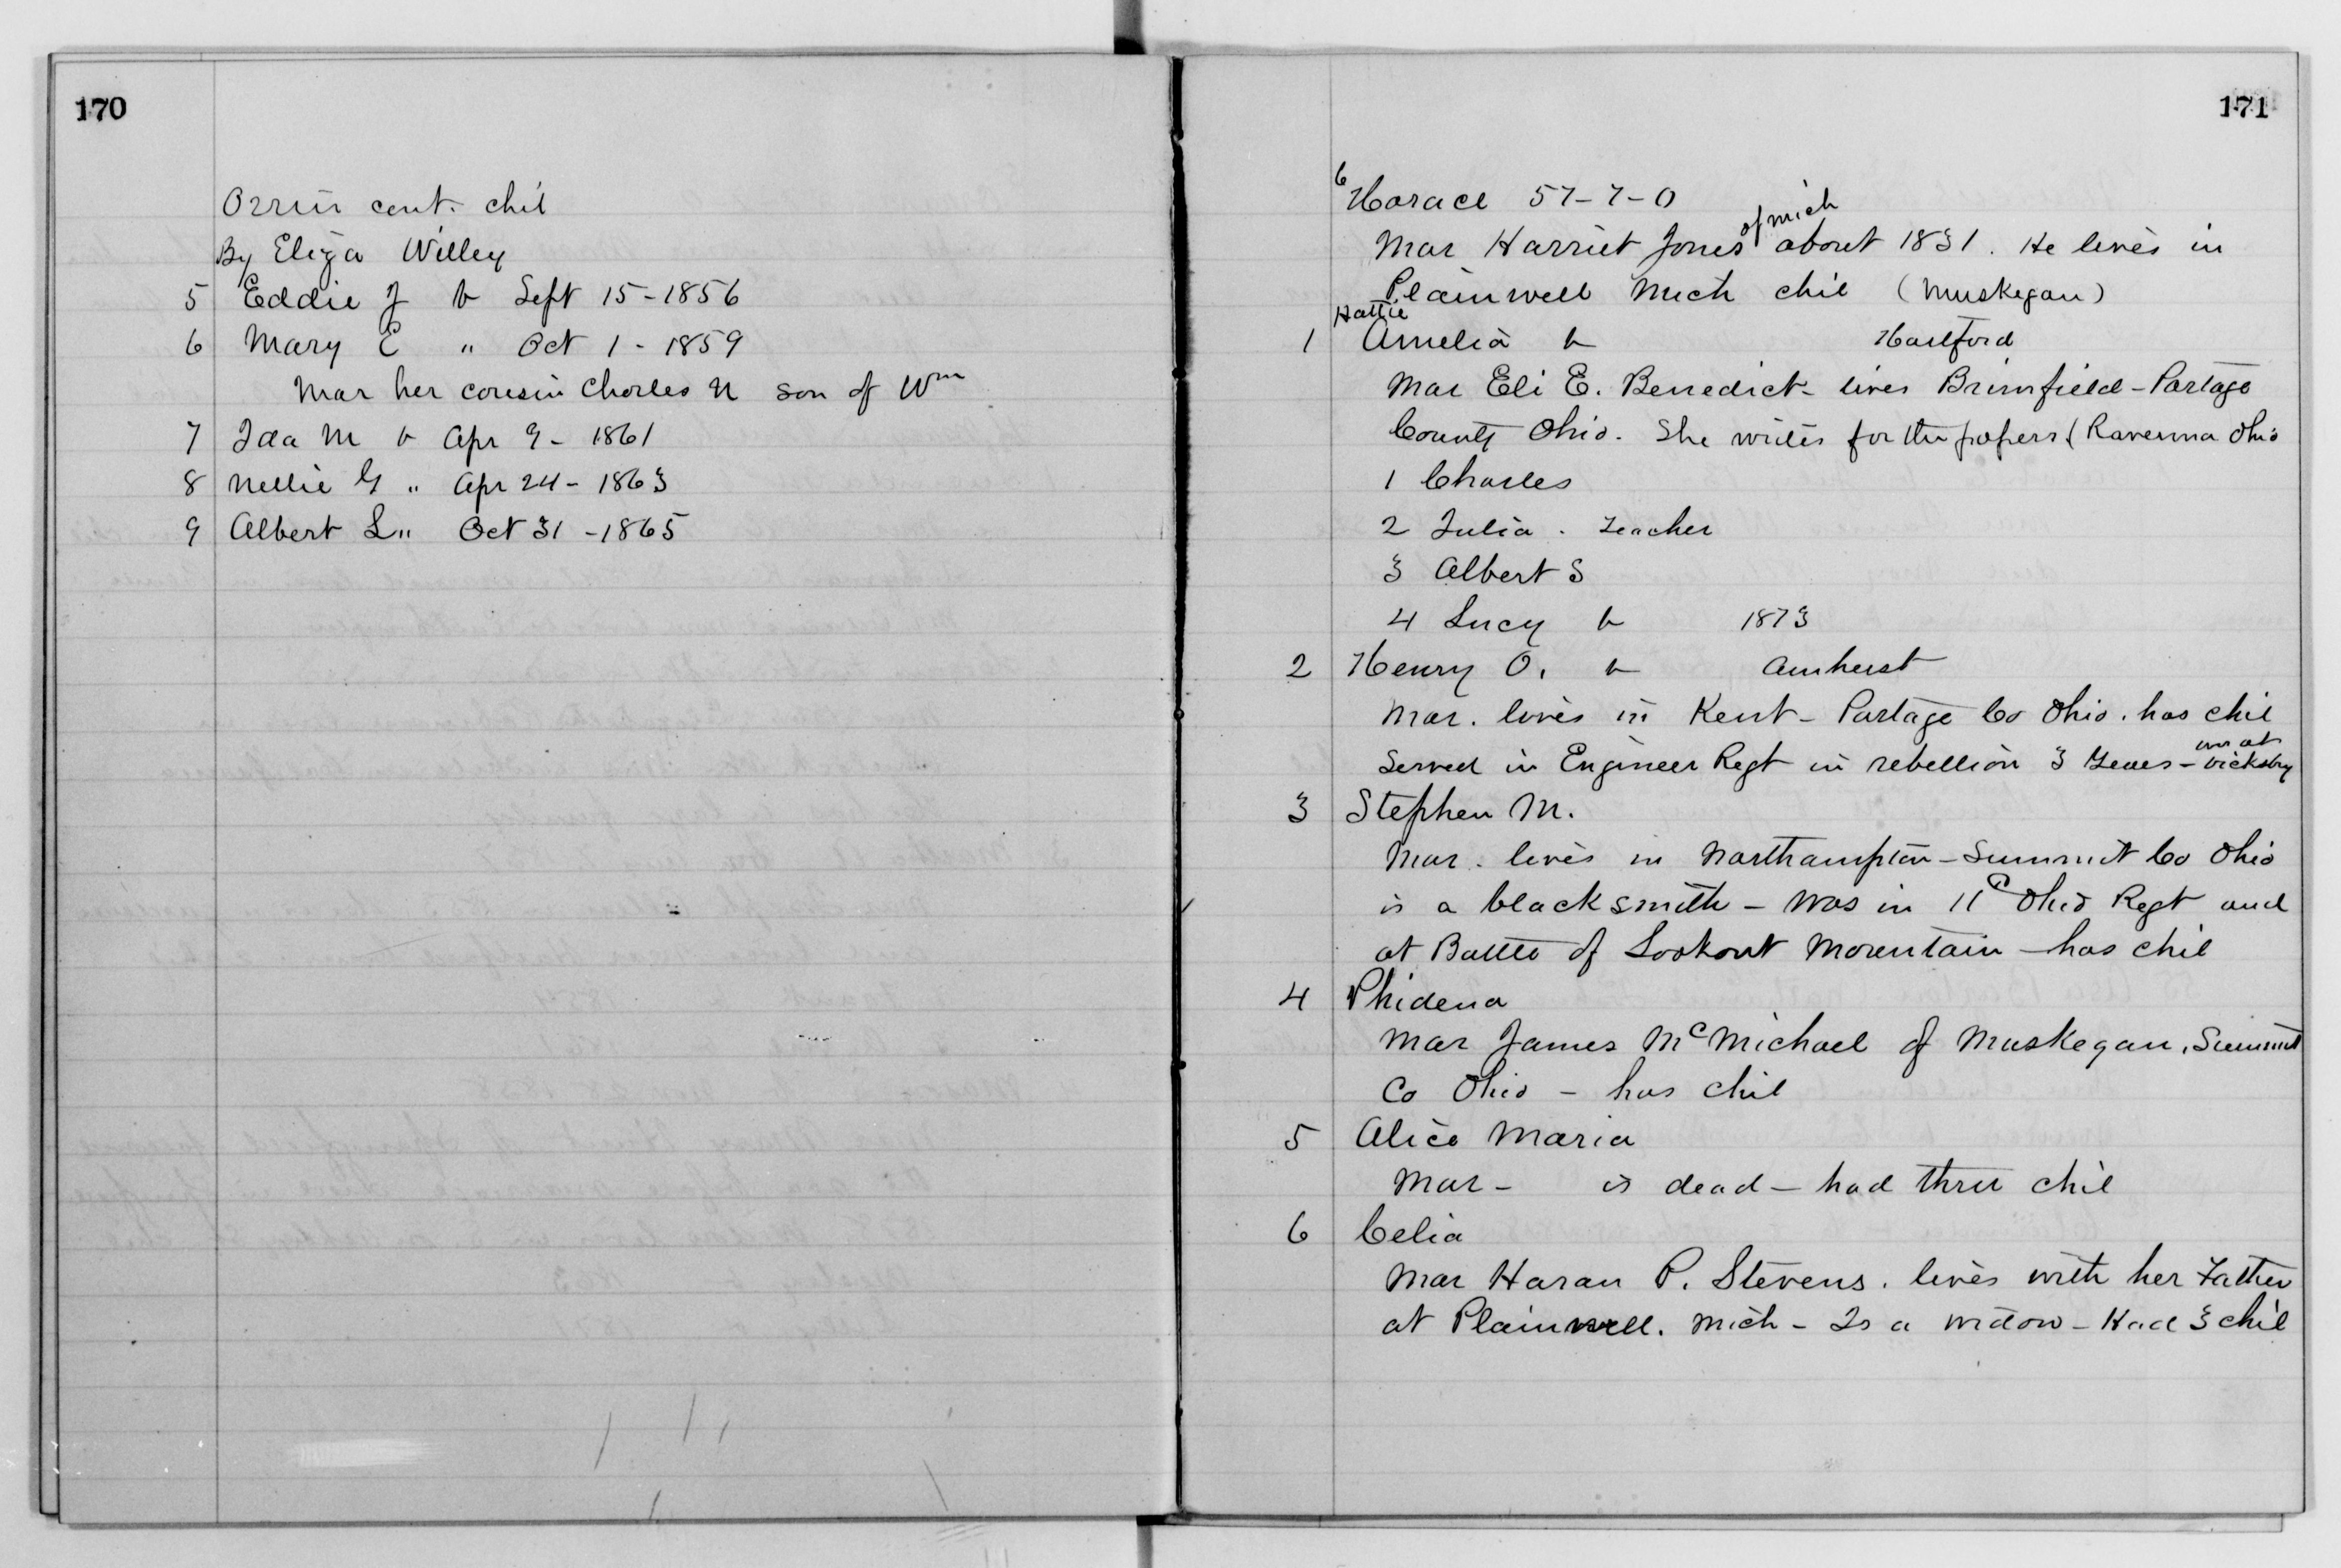 170
Orrin cont. chil
By Eliza Willey
5 Eddie J b Sept 15-1856
6 Mary E " Oct 1-1859
Mar her cousin Charles N son of Wm
7 Ida M b Apr 9-1861
8 Nellie G " Apr 24-1863
9 Albert L " Oct 31-1865
171
6 Horace 57-7-0
of Mich
Mar Harriet Jones about 1831. He lives in
Plainwell Mich chil (Muskegan)
Hattie
1 Amelia b Hartford
Mar Eli E. Benedict - lives Brimfield - Partage
County Ohio. She writes for the papers (Ravenna Ohio
1 Charles
2 Julia. Teacher
3 Albert S
4 Lucy b 1873
2 Henry O. b Amherst
Mar. lives in Kent - Partage Co Ohio. has chil
was at
Served in Engineer Regt in rebellion 3 Years - Vicksbg
3 Stephen M.
Mar. lives in Northampton - Summit Co Ohio
is a blacksmith - Was in 11 Ohio Regt and
at Battle of Lookout Mountain - has chil
4 Phidena
Mar James McMichael of Muskegan, Summit
Co Ohio - has chil
5 Alice Maria
Mar - is dead - had three chil
6 Celia
Mar Haran P. Stevens. lives with her Father
at Plainwell. Mich - Is a widow - Had 3 chil